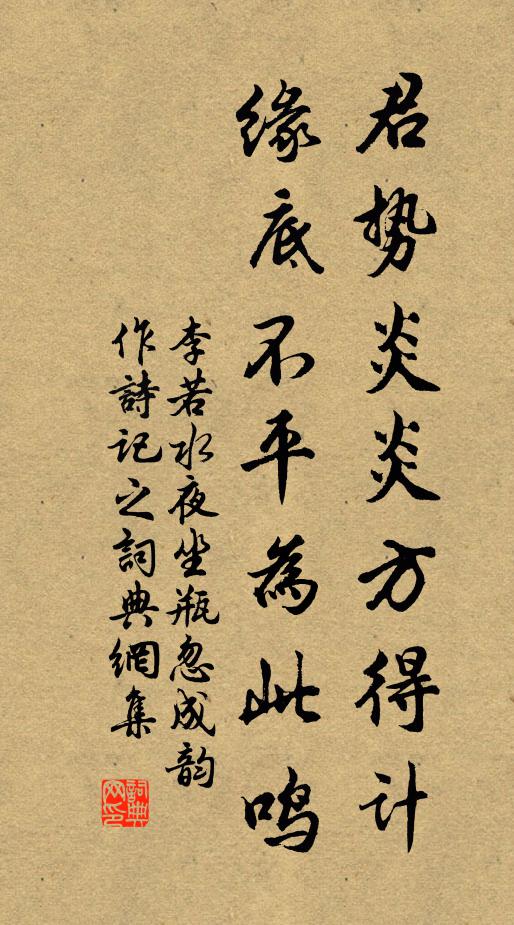 君势炎炎方得计
缘底不平為此鸣
李若水夜坐瓶忽成韵
作詩記之詞典網集
詞典
网印